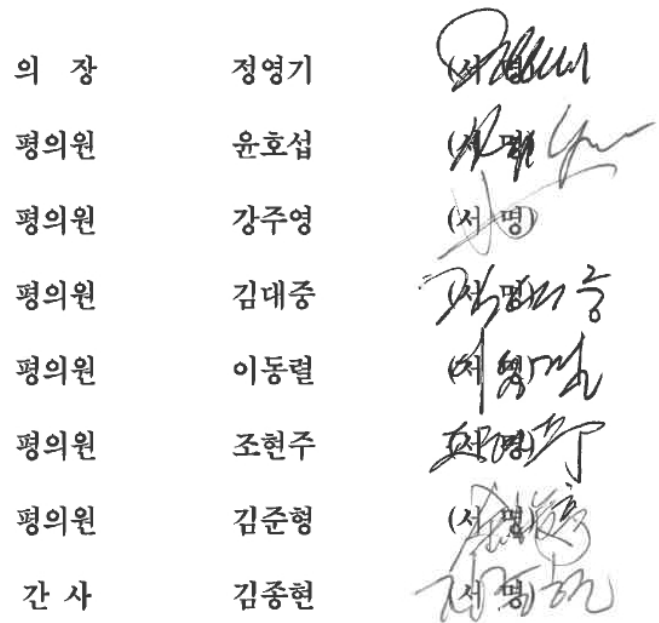 의 장 정영기 (서명)
평의원 윤호섭 (서명)
평의원 강주영 (서명)
평의원 김대중 (서명)
평의원 이동렬 (서명)
평의원 조현주 (서명)
평의원 김준형 (서명)
간 사 김종현 (서명)